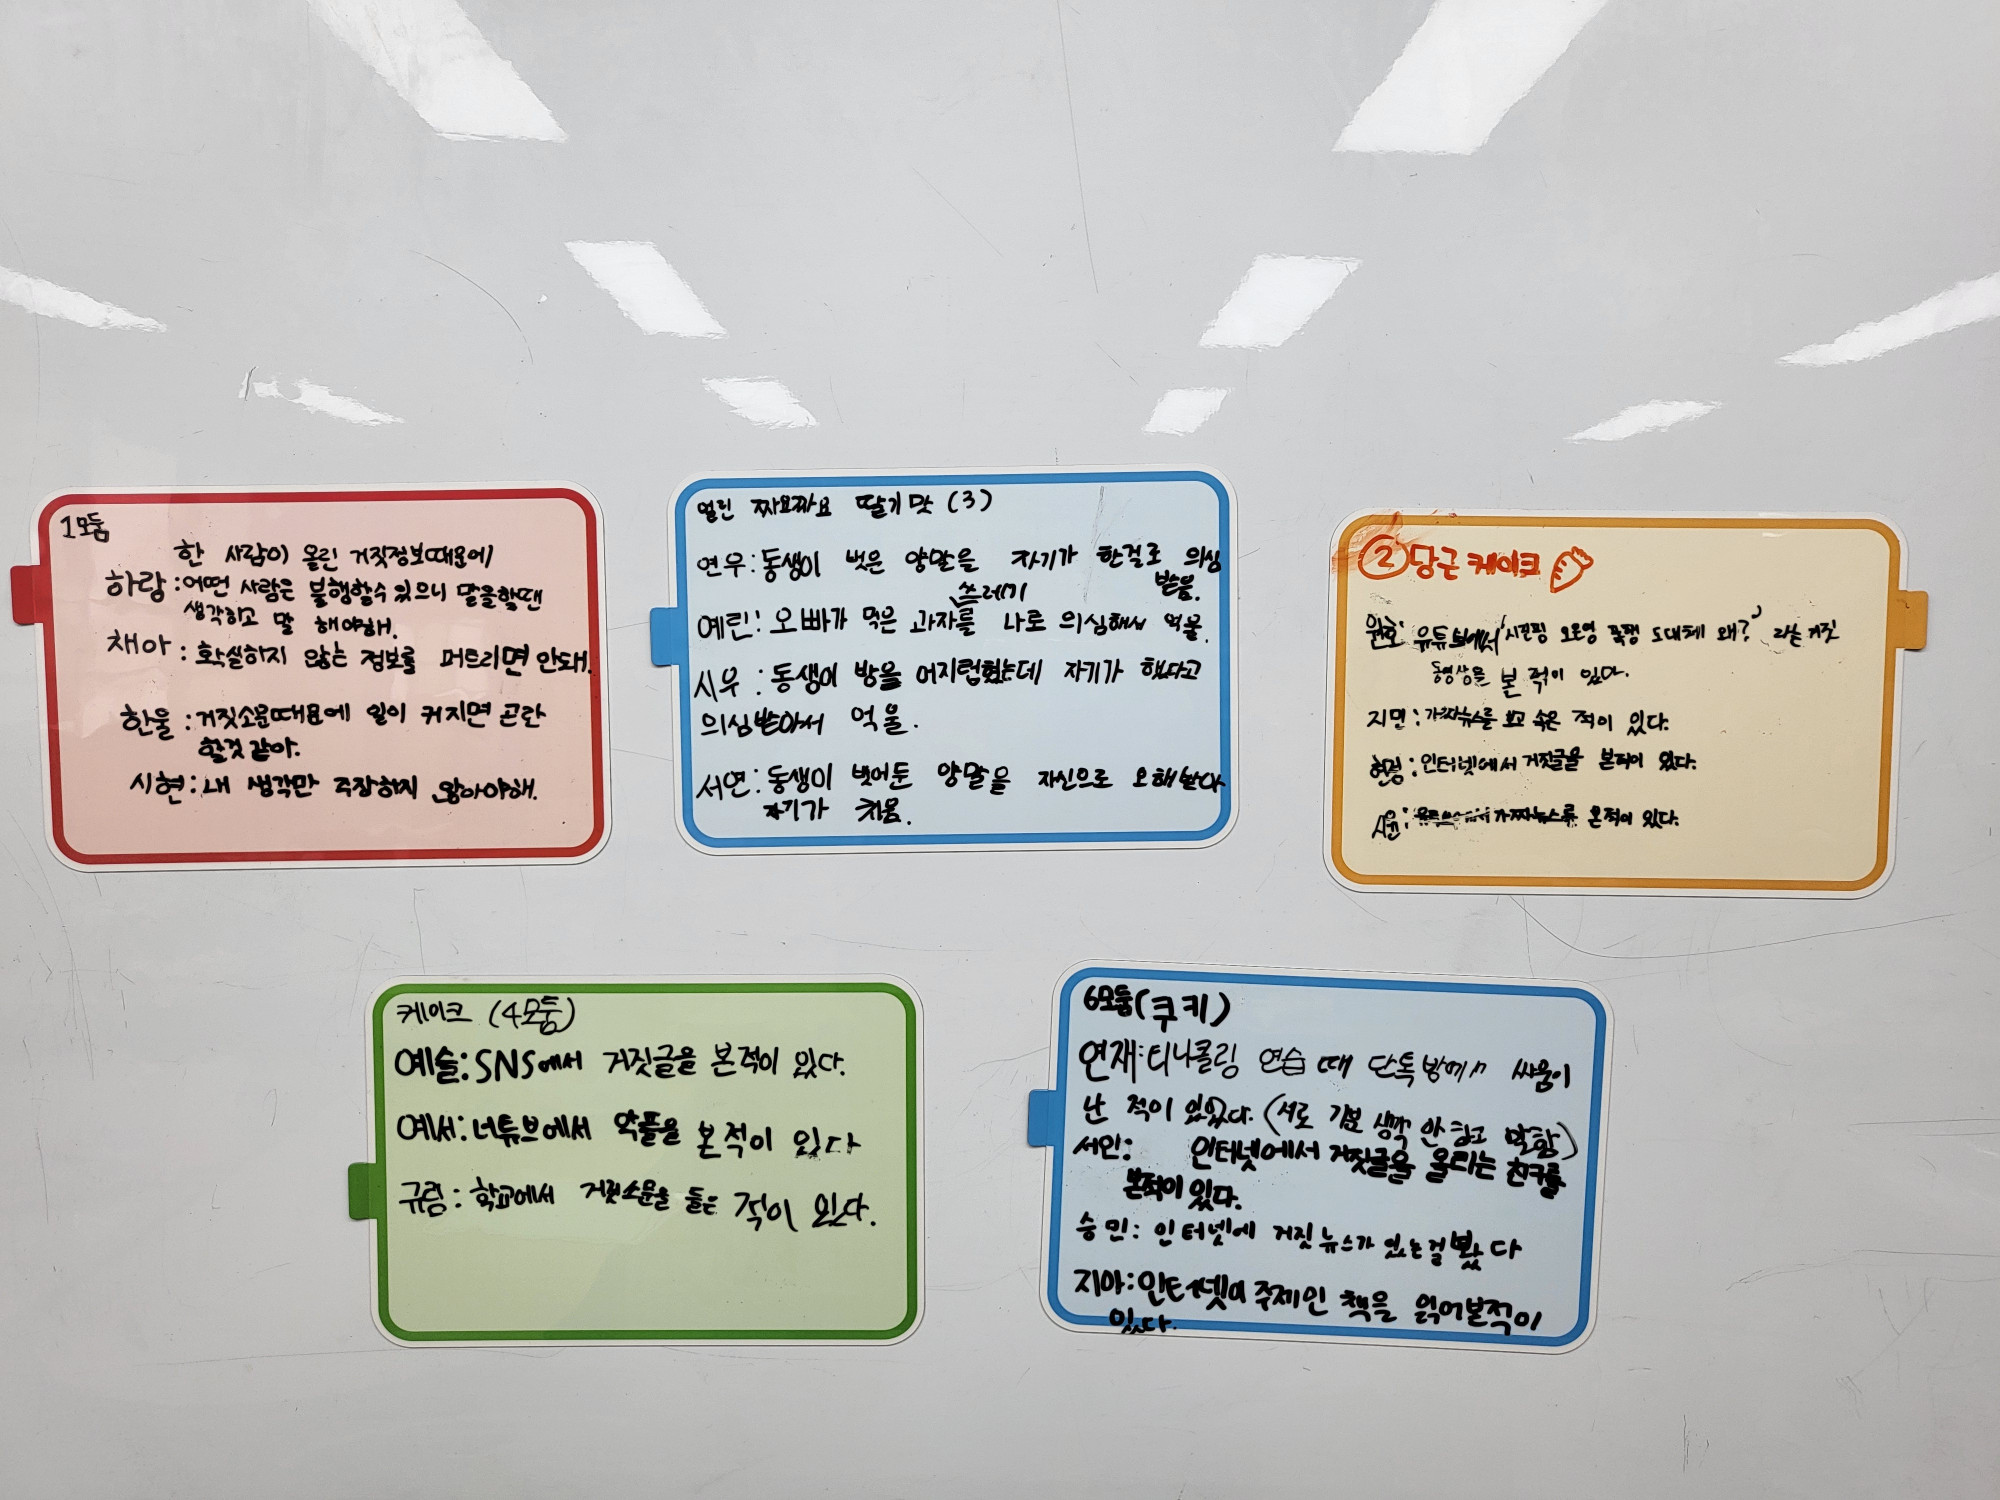 1모둠
한 사람이 올린 거짓정보때문에
하랑:어떤 사람은 불행할수 있으니 말을할땐
생각하고 말 해야해.
채아: 확실하지 않는 정보를 퍼트리면 안돼.
한울:거짓소문때문에 일이 커지면 곤란
할것 같아.
시현:내 생각만 주장하지 않아야해.
얼린 짜요짜요 딸기맛 (3)
연우:동생이 벗은 양말을 자기가 한걸로 의심
받음.
쓰레기
예린:오빠가 먹은 과자를 나로 의심해서 억울.
시우:동생이 방을 어지럽혔는데 자기가 했다고
의심받아서 억울.
서연:동생이 벗어둔 양말을 자신으로 오해받다
자기가 치움.
② 당근 케이크
원호: 유튜브에서 '시진핑 오은영 폭행 도대체 왜?' 라는 거짓
동영상을 본 적이 있다.
지민:가짜뉴스를 보고 속은 적이 있다.
인터넷에서 거짓글을 본적이 있다.
시윤: 가짜뉴스를 본적이 있다.
케이크 (4모둠)
예슬:SNS에서 거짓글을 본적이 있다.
예서:너튜브에서 악플을 본적이 있다
규림:학교에서 거짓소문을 들은 적이 있다.
6모둠(쿠키)
연재:티니클링 연습 때 단톡방에서 싸움이
난 적이 있었다. (서로 기분 생각 안 하고 말함)
서인: 인터넷에서 거짓글을 올리는 친구를
본적이 있다.
승민: 인터넷에 거짓 뉴스가 있는걸 봤다
지아:인터넷이 주제인 책을 읽어본적이
있다.